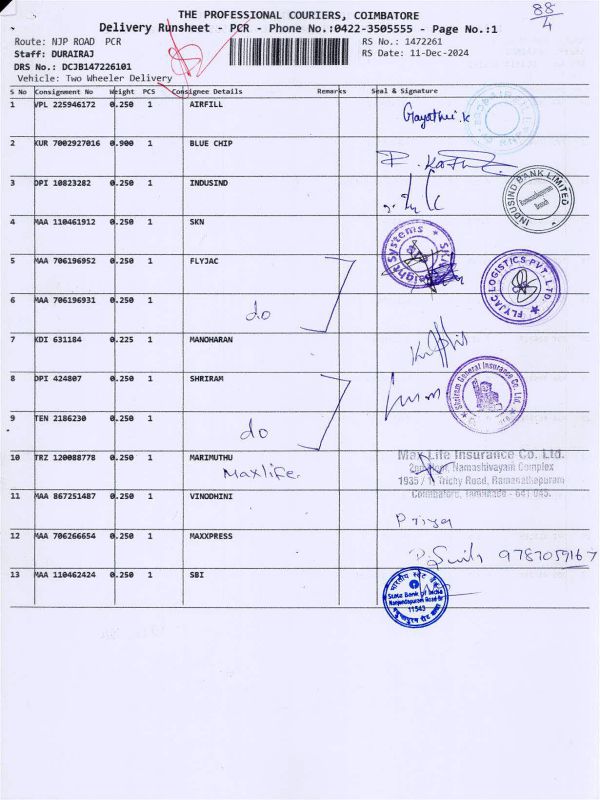 THE PROFESSIONAL COURIERS, COIMBATORE
88/4
Delivery Runsheet - PCR - Phone No.:0422-3505555 - Page No.:1
Route: NJP ROAD PCR
RS No.: 1472261
Staff: DURAIRAJ
RS Date: 11-Dec-2024
DRS No.: DCJB147226101
Vehicle: Two Wheeler Delivery
S No Consignment No Weight PCS Consignee Details Remarks Seal & Signature
1 VPL 225946172 0.250 1 AIRFILL
Gayathri.K
2 KUR 7002927016 0.900 1 BLUE CHIP
3 DPI 10823282 0.250 1 INDUSIND
INDUSIND BANK LIMITED
Ramanathapuram
Branch
4 MAA 110461912 0.250 1 SKN
5 MAA 706196952 0.250 1 FLYJAC
FLYJAC LOGISTICS PVT. LTD.
6 MAA 706196931 0.250 1
do
7 KDI 631184 0.225 1 MANOHARAN
8 DPI 424807 0.250 1 SHRIRAM
Shriram General Insurance Co. Ltd.
9 TEN 2186230 0.250 1
do
10 TRZ 120088778 0.250 1 MARIMUTHU
Maxlife.
Max Life Insurance Co. Ltd.
2nd Floor, Namashivayam Complex
1935 / 1, Trichy Road, Ramanathapuram
Coimbatore, Tamilnadu - 641 045.
11 MAA 867251487 0.250 1 VINODHINI
Priya
12 MAA 706266654 0.250 1 MAXXPRESS
9787059167
13 MAA 110462424 0.250 1 SBI
State Bank of India
Nanjundapuram Road Br
11543